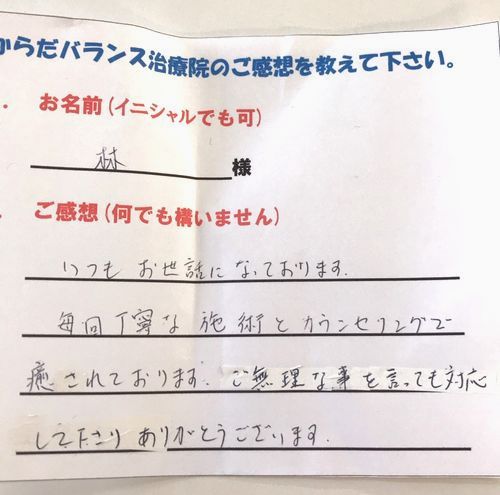 からだバランス治療院のご感想を教えて下さい。
. お名前(イニシャルでも可)
林 様
. ご感想(何でも構いません)
いつもお世話になっております.
毎回丁寧な施術とカウンセリングで
癒されております. ご無理な事を言っても対応
して下さりありがとうございます.